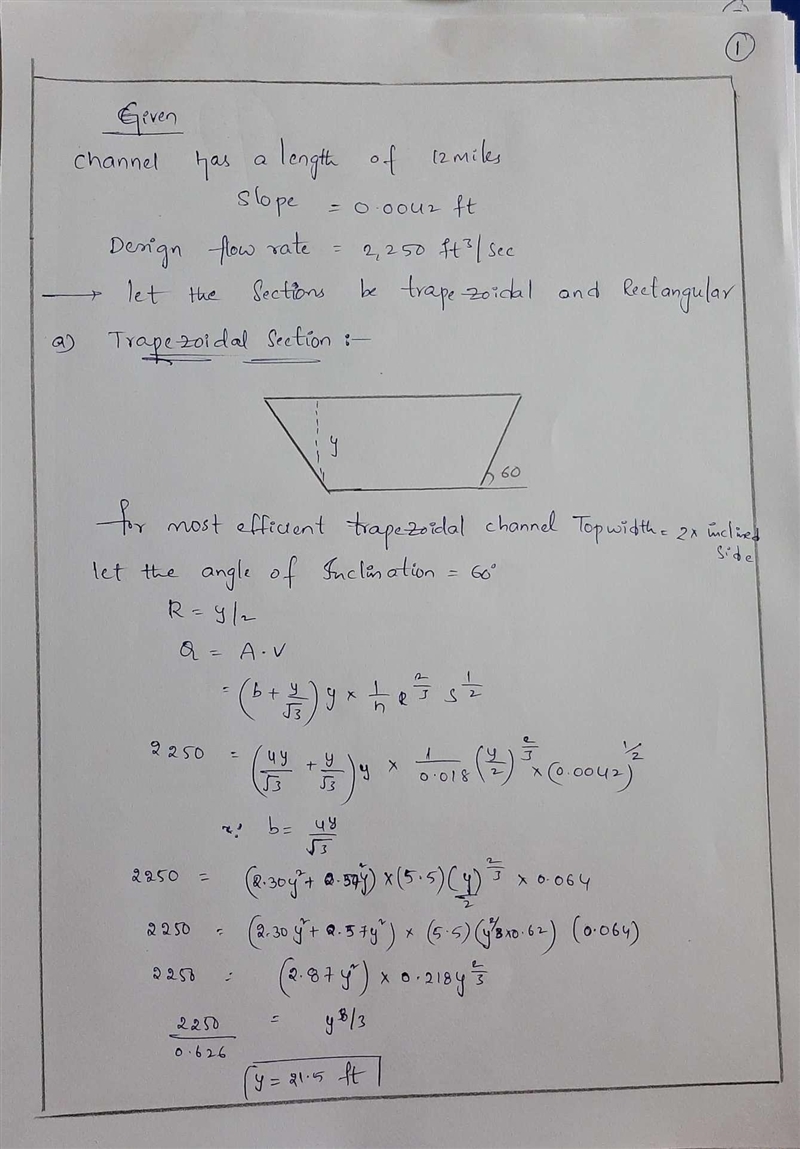 1
Given
Channel has a length of 12 miles
Slope = 0.0042 ft
Design flow rate = 2,250 ft³/sec
→ let the Sections be trapezoidal and Rectangular
a) Trapezoidal Section :-
y
60
for most efficient trapezoidal channel Topwidth = 2x inclined side
let the angle of Inclination = 60°
R = y/2
Q = A.V
= (b + y/√3) y × 1/n R^2/3 S^1/2
2250 = (4y/√3 + y/√3) y × 1/0.018 (y/2)^2/3 × (0.0042)^1/2
∵ b = 4y/√3
2250 = (2.30y² + 0.57y²) × (5.5) (y/2)^2/3 × 0.064
2250 = (2.30y² + 0.57y²) × (5.5) (y^2/3 × 0.62) (0.064)
2250 = (2.87y²) × 0.218y^2/3
2250/0.626 = y^8/3
y = 21.5 ft